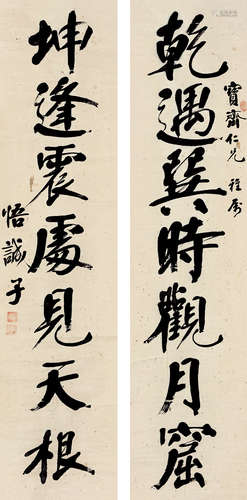 乾遇巽時觀月窟
寶齋仁兄雅屬
坤逢震處見天根
悟誠子